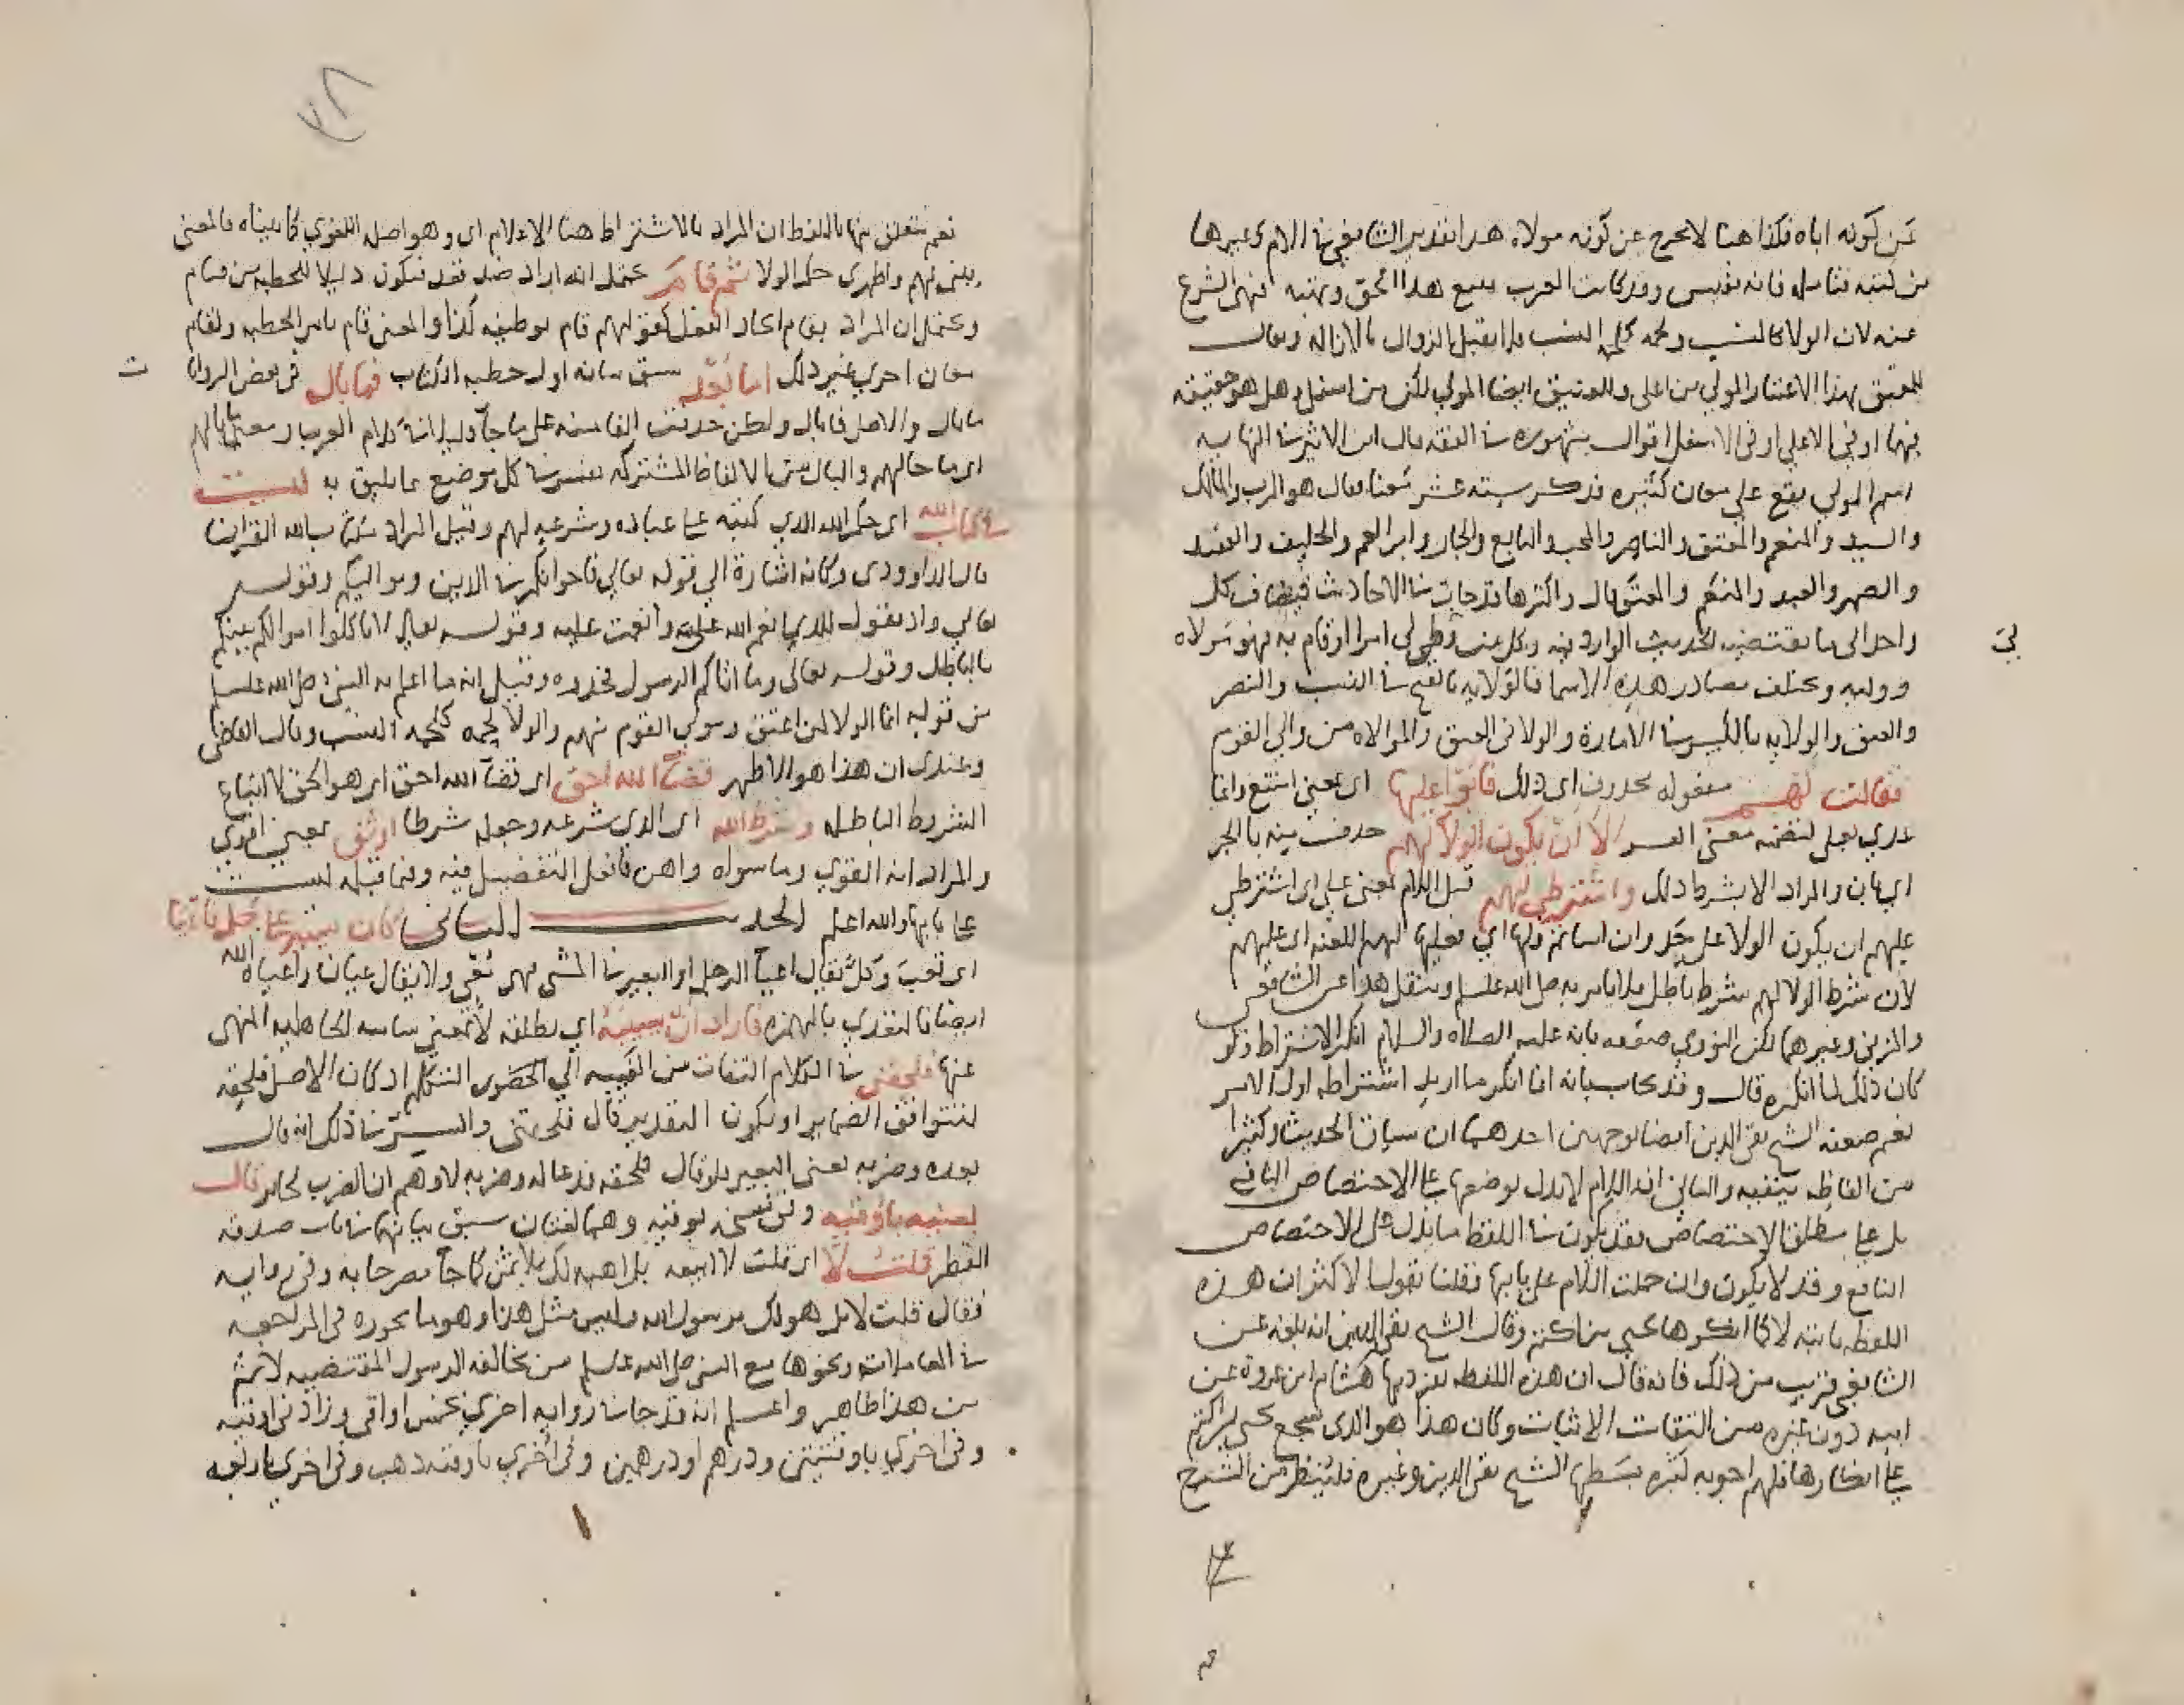 عن كونه اباه فكذا هنا لا يخرج عن كونه مولاه هذا تقدير الشافعي في الام وغيرها
من كتبه فتامله فانه نفيس وقد كانت العرب تبيع هذا الحق وتهبه فنهى الشرع
عنه لان الولا كالنسب ولحمه كلحمة النسب فلا يقبل الزوال بالازاله ويقال
للمعتق بهذا الاعتبار المولى من اعلى وللعتيق ايضا المولى لكن من اسفل وهل هو حقيقه
فيهما او في الاعلى او في الاسفل اقوال مشهوره في الفقه قال ابن الاثير في النهايه
اسم المولى يقع على معان كثيره فذكر سته عشر معنا فقال هو الرب والمالك
والسيد والمنعم والمعتق والناصر والمحب والتابع والجار وابن العم والحليف والعقيد
والصهر والعبد والمنعم والمعتق قال واكثرها قد جات في الاحاديث فيضاف كل
واحد الى ما يقتضيه الحديث الوارد فيه وكل من ولي امرا او قام به فهو مولاه
ووليه وتختلف مصادر هذه الاسما فالولايه بالفتح في النسب والنصر
والعتق والولايه بالكسر في الامارة والولا في العتق والموالاه من والى القوم
فقالت لهم مقوله محذوف اي ذلك فابوا عليها اي بمعنى امتنع وانما
عدي بعلى لتضمنه معنى الا ان يكون الولا لهم حذف منه بالجر
اي بان والمراد الا بشرط ذلك واشترطي لهم قيل اللام بمعنى على اي اشترطي
عليهم ان يكون الولا على حد وان اساتم فلها اي فعليها لهم اللعنه اي عليهم
لان شرط الولا لهم شرط باطل فلا يامر به صلى الله عليه وسلم وينقل هذا عن الشافعي
والمزني وغيرهما لكن النووي ضعفه بانه عليه الصلاه والسلام انكر الاشتراط فلو
كان ذلك لما انكره قال وقد يجاب بانه انما انكر ما اريد اشتراطه اول الامر
نعم ضعفه الشيخ تقي الدين ايضا بوجهين احدهما ان سياق الحديث وكثيرا
من الفاظه ينفيه والثاني ان اللام لا تدل بوضعها على الاختصاص النافع
بل على مطلق الاختصاص فقد يكون في اللفظ ما يدل على الاختصاص
النافع وقد لا يكون وان حملت اللام على بابها فقلنا بقول الاكثر ان هذه
اللفظه ثابته لا كما انكرها يحيى بن اكثم وقال الشيخ تقي الدين انه بلغه عن
الشافعي قريب من ذلك فانه قال ان هذه اللفظه تفرد بها هشام بن عروة عن
ابيه دون غيره من الثقات الاثبات وكان هذا هو الذي شجع يحيى بن اكثم
على انكارها فلهم اجوبه كثيره بسطها الشيخ تقي الدين وغيره فلينظر من الشرح
نعم يتعلق منها باللفظ ان المراد بالاشتراط هنا الاعلام اي وهو اصله اللغوي كما بيناه فالمعنى
بيني لهم واظهري حكم الولا ثم قام يحتمل انه اراد ضد قعد فيكون دليلا للخطبه من قيام
ويحتمل ان المراد بقام ايجاد الفعل كقولهم قام بوظيفه كذا والمعنى قام بامر الخطبه ولقام
معان اخرى غير ذلك اما بعد سبق بيانه اول خطبه الكتاب فما بال في بعض الروايا
ما بال والاصل فما بال ولكن حذفت الفا منه على ما جا قليلا في كلام العرب ومعنى ما بالهم
اي ما حالهم والبال من الالفاظ المشتركه يفسر في كل موضع بما يليق به ليست
في كتاب الله اي حكم الله الذي كتبه على عباده وشرعه لهم وقيل المراد بكتاب الله القران
قال الداوودي وكانه اشارة الى قوله تعالى فاخوانكم في الدين ومواليكم وقوله
تعالى واذ تقول للذي انعم الله عليه وانعمت عليه وقوله تعالى لا تاكلوا اموالكم بينكم
بالباطل وقوله تعالى وما اتاكم الرسول فخذوه وقيل انه ما اعلم به النبي صلى الله عليه وسلم
من قوله انما الولا لمن اعتق ومولى القوم منهم والولا لحمه كلحمه النسب وقال القاضي
وعندي ان هذا هو الاظهر قضا الله احق اي قضا الله احق اي هو الحق لا اتباع
الشروط الباطله وشرط الله اي الذي شرعه وجعله شرطا اوثق بمعنى اقوى
والمراد انه القوي وما سواه واهن فافعل التفضيل فيه وفيما قبله ليست
على بابها والله اعلم الحديث الثاني كان يسير على جمل فاعيا
اي تعب وكل يقال اعيا الرجل او البعير في المشي فهو معي ولا يقال عيان واعياه الله
ايضا فالتعدي بالهمزه فاراد ان يسيبه اي يطلقه لا بمعنى سايبه الجاهليه المنهي
عنها فلحقني في الكلام التفات من الغيبه الى الحضور المتكلم اذ كان الاصل فلحقه
لتتوافق الضماير او يكون التقدير قال فلحقني والسر في ذلك انه قال
بعده وضربه يعني البعير فلو قال فلحقه فدعا له وضربه لاوهم ان الضرب لجابر قال
بعنيه باوقيه وفي نسخه بوقيه وهما لغتان سبق بيانهما في باب صدقه
الفطر قلت لا اي قلت لا ابيعه بل اهبه لك بلا ثمن كما جا مصرحا به وفي روايه
فقال قلت لا بل هو لك يرسول الله وليس مثل هذا وهو ما يجوزه في المراجعه
في المعاملات ونحوها مع النبي صلى الله عليه وسلم من مخالفه الرسول المقتضيه لاثم
من هذا ظاهر واعلم انه قد جا في روايه اخرى بخمس اواقي وزاد في اوقيه
وفي اخرى باوقيتين ودرهم او درهمين وفي اخرى باوقيه ذهب وفي اخرى باربعه